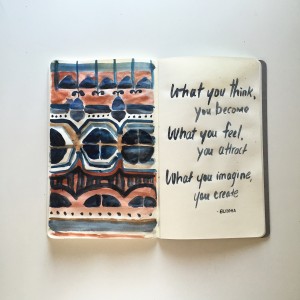 What you think,
you become
What you feel,
you attract
What you imagine,
you create
- BUDDHA